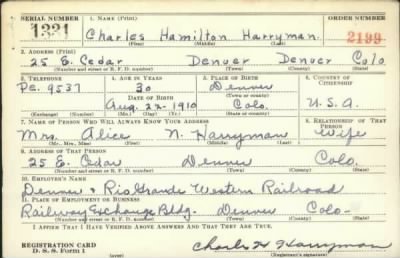 SERIAL NUMBER 1. NAME (Print) ORDER NUMBER
1331 Charles Hamilton Harryman. 2199
(First) (Middle) (Last)
2. ADDRESS (Print)
25 E. Cedar Denver Denver Colo
(Number and street or R. F. D. number) (Town) (County) (State)
3. TELEPHONE 4. AGE IN YEARS 5. PLACE OF BIRTH 6. COUNTRY OF CITIZENSHIP
Pe. 9537 30 Denver
DATE OF BIRTH (Town or county)
Aug. 22-1910 Colo. U.S.A.
(Exchange) (Number) (Mo.) (Day) (Yr.) (State or country)
7. NAME OF PERSON WHO WILL ALWAYS KNOW YOUR ADDRESS 8. RELATIONSHIP OF THAT PERSON
Mrs. Alice N. Harryman Wife
(Mr., Mrs., Miss) (First) (Middle) (Last)
9. ADDRESS OF THAT PERSON
25 E. Cedar Denver Colo.
(Number and street or R. F. D. number) (Town) (County) (State)
10. EMPLOYER'S NAME
Denver & Rio Grande Western Railroad
11. PLACE OF EMPLOYMENT OR BUSINESS
Railway Exchange Bldg. Denver Colo-
(Number and street or R. F. D. number) (Town) (County) (State)
I AFFIRM THAT I HAVE VERIFIED ABOVE ANSWERS AND THAT THEY ARE TRUE.
REGISTRATION CARD
D. S. S. Form 1 Charles H Harryman